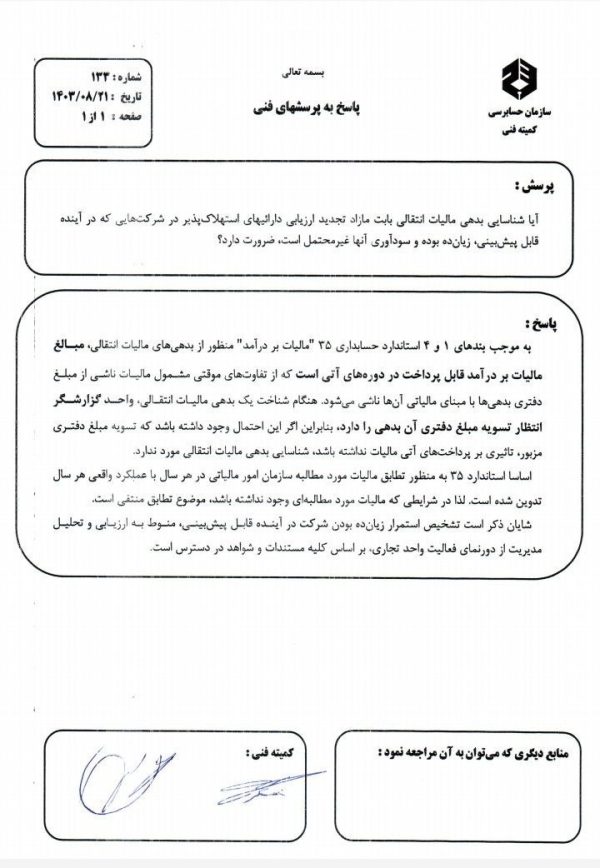 بسمه تعالی
پاسخ به پرسشهای فنی
سازمان حسابرسی
کمیته فنی
شماره : ۱۳۳
تاریخ : ۱۴۰۳/۰۸/۲۱
صفحه : ۱ از ۱
پرسش :
آیا شناسایی بدهی مالیات انتقالی بابت مازاد تجدید ارزیابی دارائیهای استهلاک‌پذیر در شرکت‌هایی که در آینده
قابل پیش‌بینی، زیان‌ده بوده و سودآوری آنها غیرمحتمل است، ضرورت دارد؟
پاسخ :
به موجب بندهای ۱ و ۴ استاندارد حسابداری ۳۵ "مالیات بر درآمد" منظور از بدهی‌های مالیات انتقالی، مبالغ
مالیات بر درآمد قابل پرداخت در دوره‌های آتی است که از تفاوت‌های موقتی مشمول مالیات ناشی از مبلغ
دفتری بدهی‌ها با مبنای مالیاتی آن‌ها ناشی می‌شود. هنگام شناخت یک بدهی مالیات انتقالی، واحد گزارشگر
انتظار تسویه مبلغ دفتری آن بدهی را دارد، بنابراین اگر این احتمال وجود داشته باشد که تسویه مبلغ دفتری
مزبور، تاثیری بر پرداخت‌های آتی مالیات نداشته باشد، شناسایی بدهی مالیات انتقالی مورد ندارد.
اساسا استاندارد ۳۵ به منظور تطابق مالیات مورد مطالبه سازمان امور مالیاتی در هر سال با عملکرد واقعی هر سال
تدوین شده است. لذا در شرایطی که مالیات مورد مطالبه‌ای وجود نداشته باشد، موضوع تطابق منتفی است.
شایان ذکر است تشخیص استمرار زیان‌ده بودن شرکت در آینده قابل پیش‌بینی، منوط به ارزیابی و تحلیل
مدیریت از دورنمای فعالیت واحد تجاری، بر اساس کلیه مستندات و شواهد در دسترس است.
منابع دیگری که می‌توان به آن مراجعه نمود :
کمیته فنی :